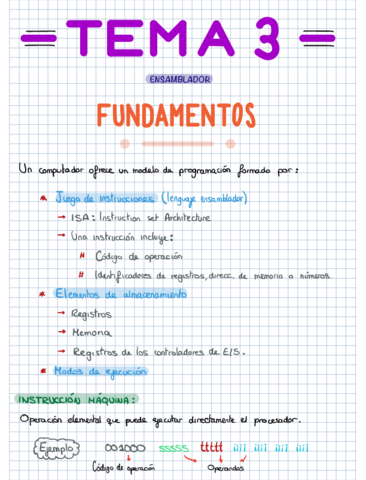 TEMA 3
ENSAMBLADOR
FUNDAMENTOS
Un computador ofrece un modelo de programación formado por:
* Juego de instrucciones (lenguaje ensamblador)
→ ISA: Instruction set Architecture
→ Una instrucción incluye:
# Código de operación
# Identificadores de registros, direcc. de memoria o números.
* Elementos de almacenamiento
→ Registros
→ Memoria
→ Registros de los controladores de E/S.
* Modos de ejecución
INSTRUCCIÓN MÁQUINA:
Operación elemental que puede ejecutar directamente el procesador.
Ejemplo 001000 sssss ttttt iiii iiii iiii iiii
Código de operación Operandos